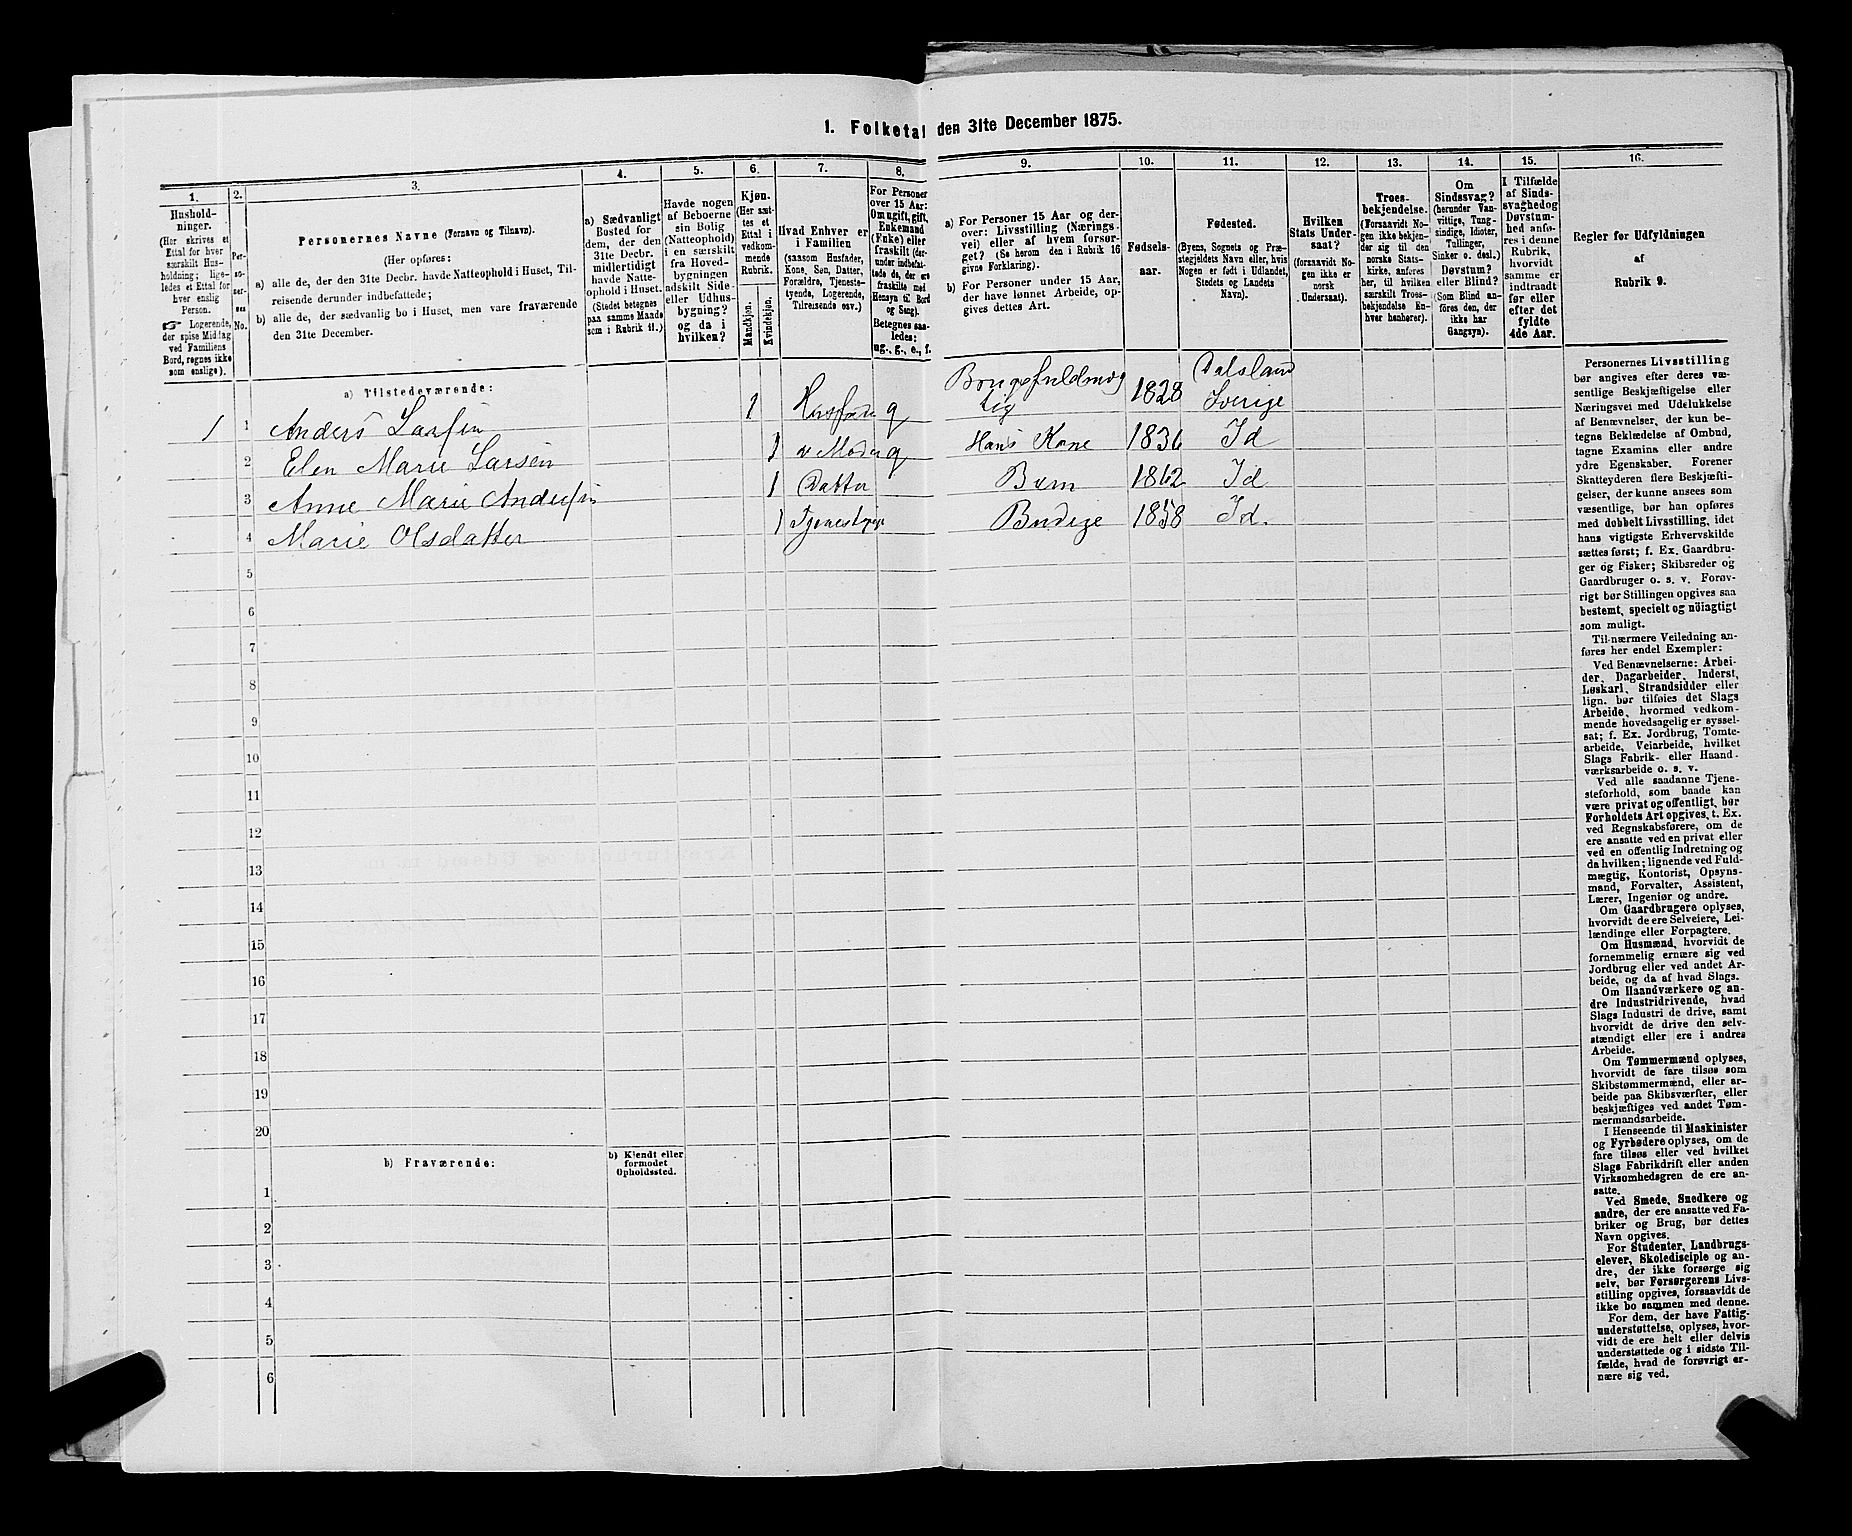 1. Folketal den 31te December 1875.
1.
2.
3.
4.
5.
6.
7.
8.
9.
10.
11.
12.
13.
14.
15.
16.
Hushold-
ninger.
(Her skrives et
Ettal for hver
særskilt Hus-
holdning; lige-
ledes et Ettal for
hver enslig
Person.
☞ Logerende,
der spise Middag
ved Familiens
Bord, regnes ikke
som enslige).
Per-
so-
ner-
nes
No.
Personernes Navne (Fornavn og Tilnavn).
(Her opføres:
a) alle de, der den 31te Decbr. havde Natteophold i Huset, Til-
reisende derunder indbefattede;
b) alle de, der sædvanlig bo i Huset, men vare fraværende
den 31te December.
a) Sædvanligt
Bosted for
dem, der den
31te Decbr.
midlertidigt
havde Natte-
ophold i Huset.
(Stedet betegnes
paa samme Maade
som i Rubrik 11.)
Havde nogen
af Beboerne
sin Bolig
(Natteophold)
i en særskilt
fra Hoved-
bygningen
adskilt Side-
eller Udhus-
bygning?
og da i
hvilken?
Kjøn.
(Her sæt-
tes et
Ettal i
vedkom-
mende
Rubrik.
Mandkjøn.
Kvindekjøn.
Hvad Enhver er
i Familien
(saasom Husfader,
Kone, Søn, Datter,
Forældre, Tjeneste-
tyende, Logerende,
Tilreisende osv.)
For Personer
over 15 Aar:
Om ugift, gift,
Enkemand
(Enke) eller
fraskilt (der-
under indbefat-
tede de, der ere
fraskilte med
Hensyn til Bord
og Seng).
Betegnes saa-
ledes:
ug., g., e., f.
a) For Personer 15 Aar og der-
over: Livsstilling (Nærings-
vei) eller af hvem forsør-
get? (Se herom den i Rubrik 16
givne Forklaring).
b) For Personer under 15 Aar,
der have lønnet Arbeide, op-
gives dettes Art.
Fødsels-
aar.
Fødested.
(Byens, Sognets og Præ-
stegjeldets Navn eller, hvis
Nogen er født i Udlandet,
Stedets og Landets
Navn).
Hvilken
Stats Under-
saat?
(forsaavidt No-
gen ikke er
norsk
Undersaat).
Troes-
bekjendelse.
(Forsaavidt No-
gen ikke bekjen-
der sig til den
norske Stats-
kirke, anføres
her, til hvilken
særskilt Troes-
bekjendelse En-
hver henhører).
Om
Sindssvag?
(herunder Van-
vittige, Tung-
sindige, Idioter,
Tullinger,
Sinker o. desl.)
Døvstum?
eller Blind?
(Som Blind an-
føres den, der
ikke har
Gangsyn).
I Tilfælde
af Sinds-
svaghed og
Døvstum-
hed anfø-
res i denne
Rubrik,
hvorvidt
samme er
indtraadt
før eller
efter det
fyldte
4de Aar.
Regler for Udfyldningen
af
Rubrik 9.
a) Tilstedeværende:
1 1 Anders Larsen 1 Husfader g Brugsfuldmæg
tig 1828 Dalsland
Sverige
2 Elen Marie Larsen 1 Moder g Hans Kone 1836 Id
3 Anne Marie Andersen 1 Datter Barn 1862 Id
4 Marie Olsdatter 1 Budeie 1858 Id.
5
6
7
8
9
10
11
12
13
14
15
16
17
18
19
20
b) Fraværende:
b) Kjendt eller
formodet
Opholdssted.
1
2
3
4
5
6
Personernes Livsstilling
bør angives efter deres væ-
sentlige Beskjæftigelse eller
Næringsvei med Udelukkelse
af Benævnelser, der kun be-
tegne Beklædelse af Ombud,
tagne Examina eller andre
ydre Egenskaber. Forener
Skatteyderen flere Beskjæfti-
gelser, der kunne ansees som
væsentlige, bør han opføres
med dobbelt Livsstilling, idet
hans vigtigste Erhvervskilde
sættes først; f. Ex. Gaardbru-
ger og Fisker; Skibsreder og
Gaardbruger o. s. v. Forøv-
rigt bør Stillingen opgives saa
bestemt, specielt og nöiagtigt
som muligt.
Til nærmere Veiledning an-
føres her endel Exempler:
Ved Benævnelserne: Arbei-
der, Dagarbeider, Inderst,
Løskarl, Strandsidder eller
lign. bør tilføies det Slags
Arbeide, hvormed vedkom-
mende hovedsagelig er syssel-
sat; f. Ex. Jordbrug, Tomte-
arbeide, Veiarbeide, hvilket
Slags Fabrik- eller Haand-
værksarbeide o. s. v.
Ved alle saadanne Tjene-
steforhold, som baade kan
være privat og offentligt, bør
Forholdets Art opgives, t. Ex.
ved Regnskabsførere, om de
ere ansatte ved en privat eller
ved en offentlig Indretning og
da hvilken; lignende ved Fuld-
mægtig, Kontorist, Opsyns-
mand, Forvalter, Assistent,
Lærer, Ingeniør og andre.
Om Gaardbrugere oplyses,
hvorvidt de ere Selveiere, Lei-
lændinge eller Forpagtere.
Om Husmænd, hvorvidt de
fornemmelig ernære sig ved
Jordbrug eller ved andet Ar-
beide, og da af hvad Slags.
Om Haandværkere og an-
dre Industridrivende, hvad
Slags Industri de drive, samt
hvorvidt de drive den selv-
stændigt eller ere i andres
Arbeide.
Om Tømmermænd oplyses,
hvorvidt de fare tilsøs som
Skibstømmermænd, eller ar-
beide paa Skibsværfter, eller
beskjæftiges ved andet Tøm-
mermandsarbeide.
I Henseende til Maskinister
og Fyrbødere oplyses, om de
fare tilsøs eller ved hvilket
Slags Fabrikdrift eller anden
Virksomhedsgren de ere an-
satte.
Ved Smede, Snedkere og
andre, der ere ansatte ved Fa-
briker og Brug, bør dettes
Navn opgives.
For Studenter, Landbrugs-
elever, Skoledisciple og an-
dre, der ikke forsørge sig
selv, bør Forsørgerens Livs-
stilling opgives, forsaavidt de
ikke bo sammen med denne.
For dem, der have Fattig-
understøttelse, oplyses, hvor-
vidt de ere helt eller delvis
understøttede og i sidste Til-
fælde, hvad de forøvrigt er-
nære sig ved.